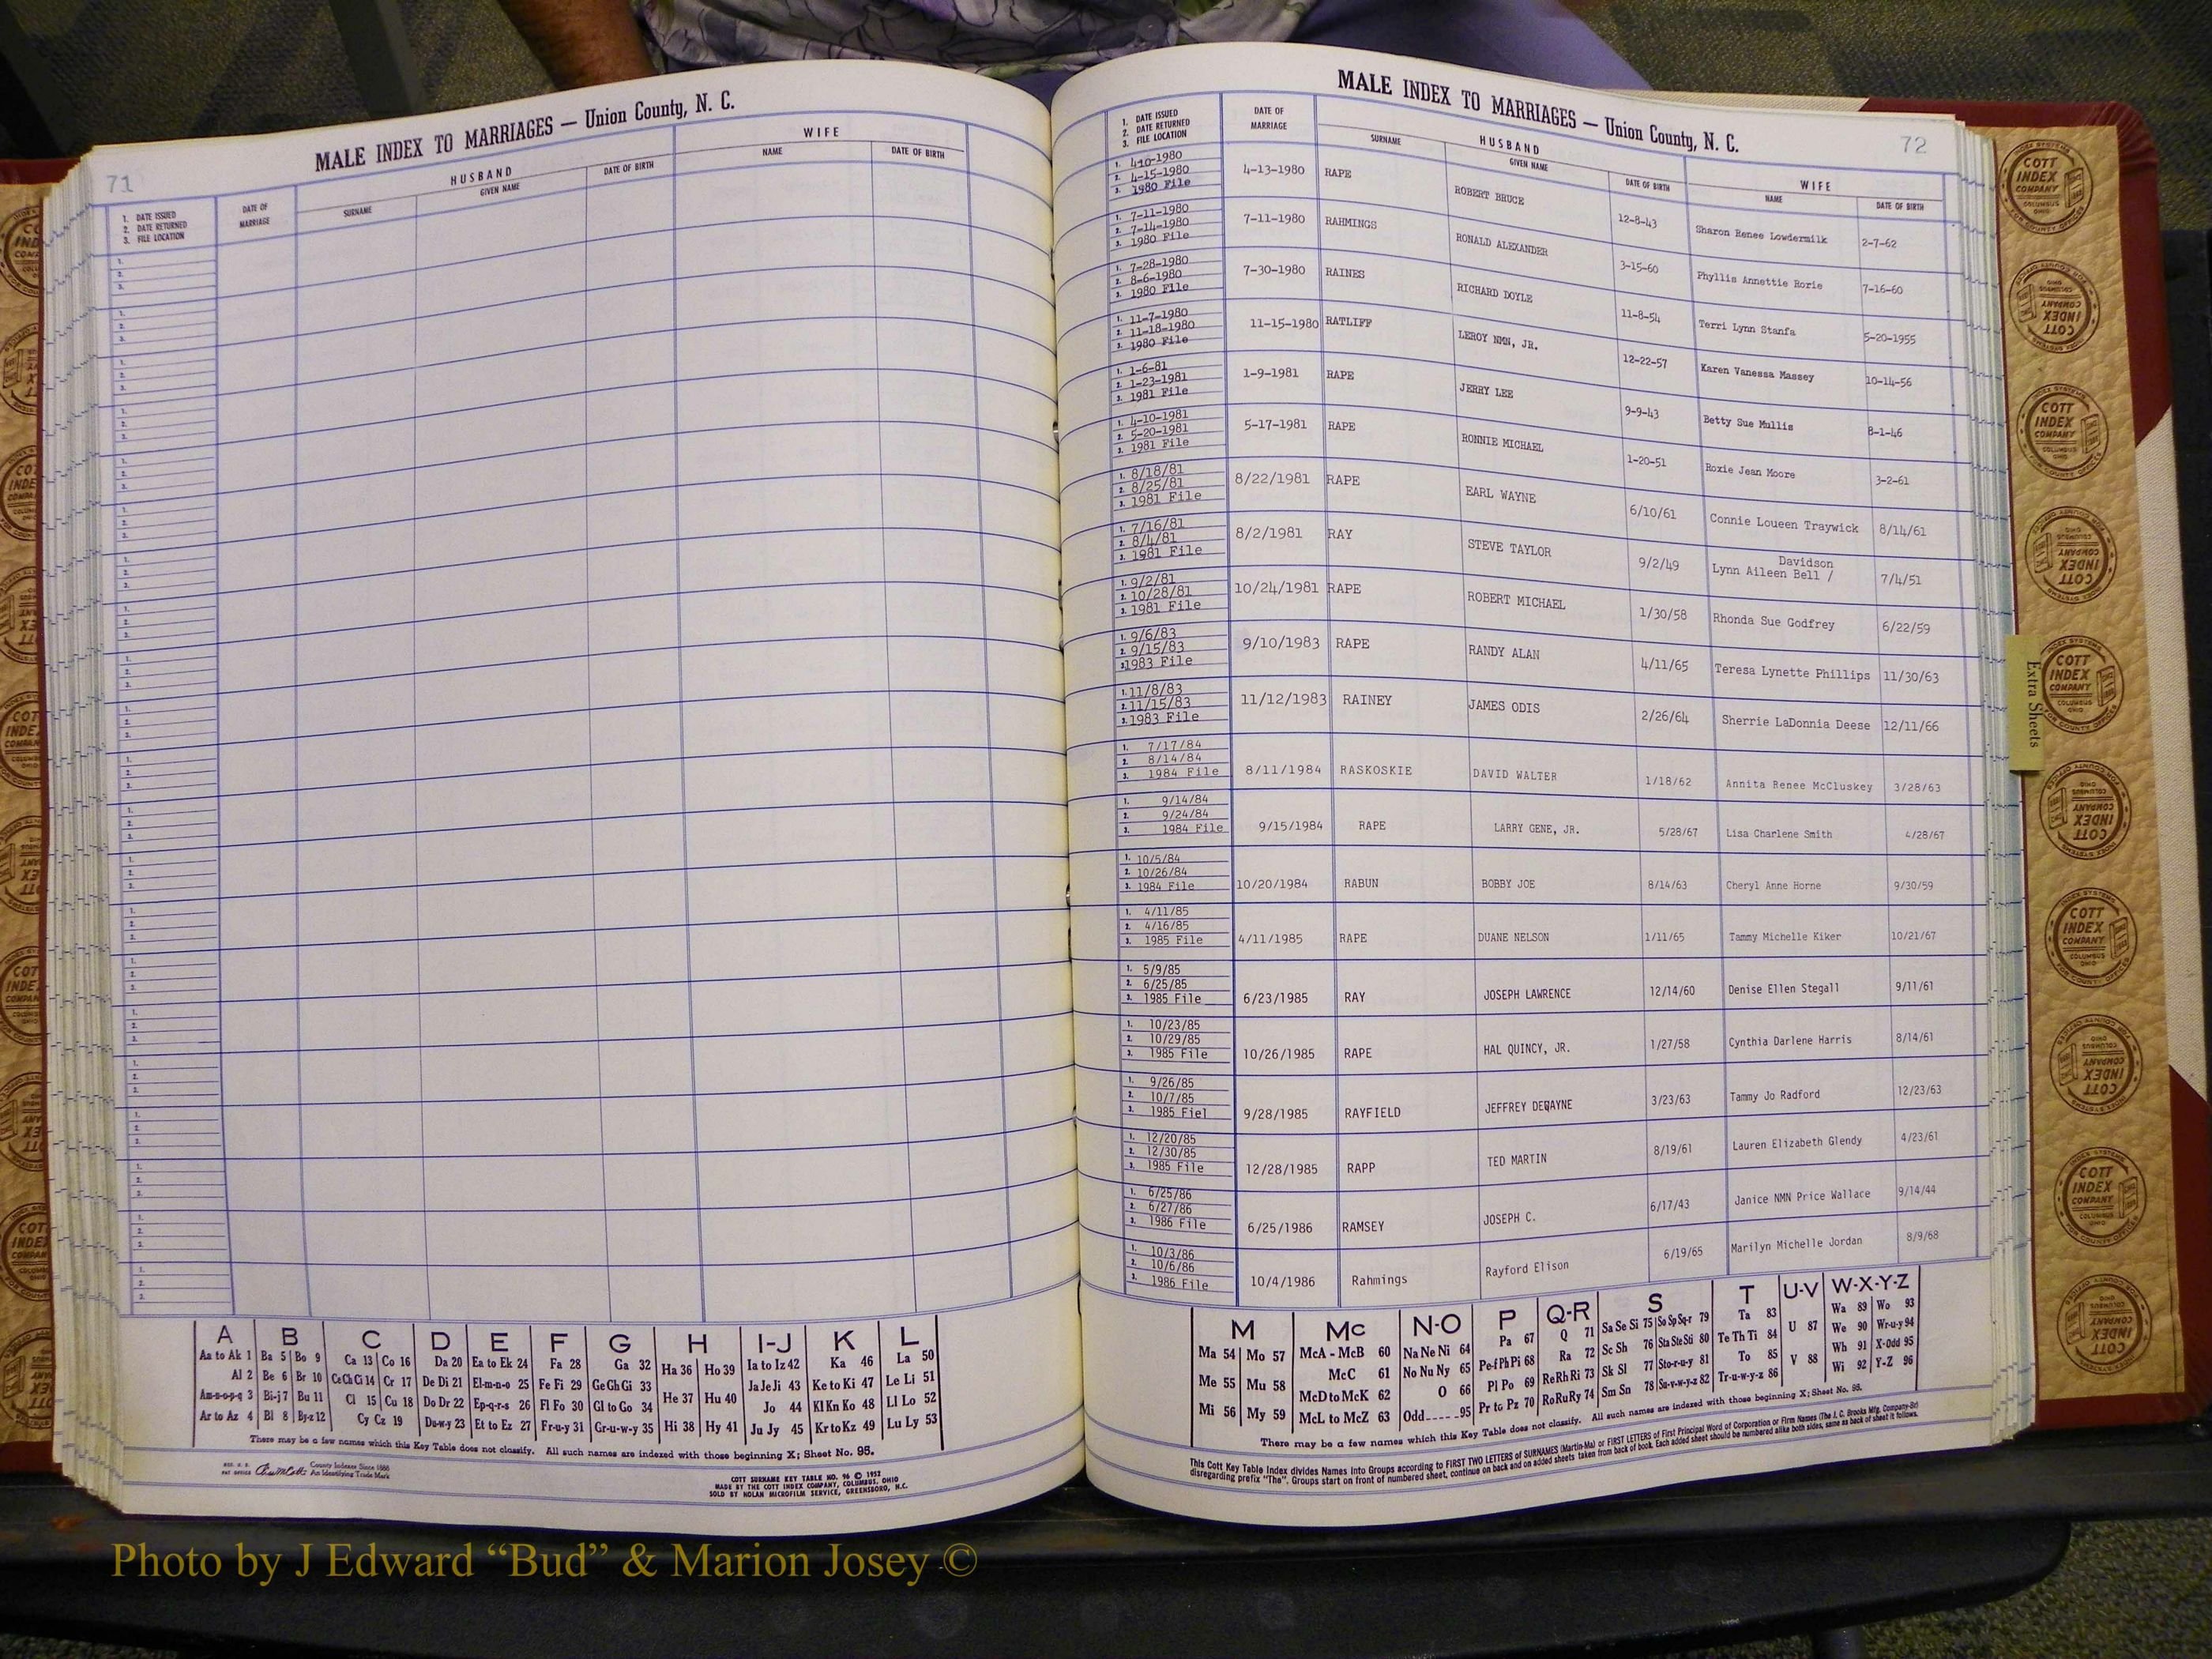 71
MALE INDEX TO MARRIAGES — Union County, N. C.
1. DATE ISSUED
2. DATE RETURNED
3. FILE LOCATION
DATE OF MARRIAGE
HUSBAND
SURNAME
GIVEN NAME
DATE OF BIRTH
WIFE
NAME
DATE OF BIRTH
A B C D E F G H I-J K L
Aa to Ak 1 Ba 5 Bo 9 Ca 13 Co 16 Da 20 Ea to Ek 24 Fa 28 Ga 32 Ha 36 Ho 39 Ia to Iz 42 Ka 46 La 50
Al 2 Be 6 Br 10 Ce Ch Ci 14 Cr 17 De Di 21 El-m-n-o 25 Fe Fi 29 Ge Gh Gi 33 He 37 Hu 40 Ja Je Ji 43 Ke to Ki 47 Le Li 51
Am-n-o-p-q 3 Bi-j 7 Bu 11 Cl 15 Cu 18 Do Dr 22 Ep-q-r-s 26 Fl Fo 30 Gl to Go 34 Jo 44 Kl Kn Ko 48 Ll Lo 52
Ar to Az 4 Bl 8 By-z 12 Cy Cz 19 Du-w-y 23 Et to Ez 27 Fr-u-y 31 Gr-u-w-y 35 Hi 38 Hy 41 Ju Jy 45 Kr to Kz 49 Lu Ly 53
There may be a few names which this Key Table does not classify. All such names are indexed with those beginning X; Sheet No. 95.
County Indexes Since 1888
An Identifying Trade Mark
COTT SURNAME KEY TABLE NO. 96 © 1952
MADE BY THE COTT INDEX COMPANY, COLUMBUS, OHIO
SOLD BY NOLAN MICROFILM SERVICE, GREENSBORO, N.C.
72
MALE INDEX TO MARRIAGES — Union County, N. C.
1. DATE ISSUED
2. DATE RETURNED
3. FILE LOCATION
DATE OF MARRIAGE
HUSBAND
SURNAME
GIVEN NAME
DATE OF BIRTH
WIFE
NAME
DATE OF BIRTH
1. 4-10-1980
2. 4-15-1980
3. 1980 File
4-13-1980 RAPE ROBERT BRUCE 12-8-43 Sharon Renee Lowdermilk 2-7-62
1. 7-11-1980
2. 7-14-1980
3. 1980 File
7-11-1980 RAHMINGS RONALD ALEXANDER 3-15-60 Phyllis Annettie Rorie 7-16-60
1. 7-28-1980
2. 8-6-1980
3. 1980 File
7-30-1980 RAINES RICHARD DOYLE 11-8-54 Terri Lynn Stanfa 5-20-1955
1. 11-7-1980
2. 11-18-1980
3. 1980 File
11-15-1980 RATLIFF LEROY NMN, JR. 12-22-57 Karen Vanessa Massey 10-14-56
1. 1-6-81
2. 1-23-1981
3. 1981 File
1-9-1981 RAPE JERRY LEE 9-9-43 Betty Sue Mullis 8-1-46
1. 4-10-1981
2. 5-20-1981
3. 1981 File
5-17-1981 RAPE RONNIE MICHAEL 1-20-51 Roxie Jean Moore 3-2-61
1. 8/18/81
2. 8/25/81
3. 1981 File
8/22/1981 RAPE EARL WAYNE 6/10/61 Connie Loueen Traywick 8/14/61
1. 7/16/81
2. 8/4/81
3. 1981 File
8/2/1981 RAY STEVE TAYLOR 9/2/49 Lynn Aileen Bell / Davidson 7/4/51
1. 9/2/81
2. 10/28/81
3. 1981 File
10/24/1981 RAPE ROBERT MICHAEL 1/30/58 Rhonda Sue Godfrey 6/22/59
1. 9/6/83
2. 9/15/83
3. 1983 File
9/10/1983 RAPE RANDY ALAN 4/11/65 Teresa Lynette Phillips 11/30/63
1. 11/8/83
2. 11/15/83
3. 1983 File
11/12/1983 RAINEY JAMES ODIS 2/26/64 Sherrie LaDonnia Deese 12/11/66
1. 7/17/84
2. 8/14/84
3. 1984 File
8/11/1984 RASKOSKIE DAVID WALTER 1/18/62 Annita Renee McCluskey 3/28/63
1. 9/14/84
2. 9/24/84
3. 1984 File
9/15/1984 RAPE LARRY GENE, JR. 5/28/67 Lisa Charlene Smith 4/28/67
1. 10/5/84
2. 10/26/84
3. 1984 File
10/20/1984 RABUN BOBBY JOE 8/14/63 Cheryl Anne Horne 9/30/59
1. 4/11/85
2. 4/16/85
3. 1985 File
4/11/1985 RAPE DUANE NELSON 1/11/65 Tammy Michelle Kiker 10/21/67
1. 5/9/85
2. 6/25/85
3. 1985 File
6/23/1985 RAY JOSEPH LAWRENCE 12/14/60 Denise Ellen Stegall 9/11/61
1. 10/23/85
2. 10/29/85
3. 1985 File
10/26/1985 RAPE HAL QUINCY, JR. 1/27/58 Cynthia Darlene Harris 8/14/61
1. 9/26/85
2. 10/7/85
3. 1985 Fiel
9/28/1985 RAYFIELD JEFFREY 3/23/63 Tammy Jo Radford 12/23/63
1. 12/20/85
2. 12/30/85
3. 1985 File
12/28/1985 RAPP TED MARTIN 8/19/61 Lauren Elizabeth Glendy 4/23/61
1. 6/25/86
2. 6/27/86
3. 1986 File
6/25/1986 RAMSEY JOSEPH C. 6/17/43 Janice NMN Price Wallace 9/14/44
1. 10/3/86
2. 10/6/86
3. 1986 File
10/4/1986 Rahmings Rayford Elison 6/19/65 Marilyn Michelle Jordan 8/9/68
M Mc N-O P Q-R S T U-V W-X-Y-Z
Ma 54 Mo 57 McA - McB 60 Na Ne Ni 64 Pa 67 Q 71 Sa Se Si 75 So Sp Sq-r 79 Ta 83 U 87 Wa 89 Wo 93
Me 55 Mu 58 McC 61 No Nu Ny 65 Pe-f Ph Pi 68 Ra 72 Sc Sh 76 Sta Ste Sti 80 Te Th Ti 84 We 90 Wr-u-y 94
McD to McK 62 O 66 Pl Po 69 Re Rh Ri 73 Sk Sl 77 Sto-r-u-y 81 To 85 V 88 Wh 91 X-Odd 95
Mi 56 My 59 McL to McZ 63 Odd-----95 Pr to Pz 70 Ro Ru Ry 74 Sm Sn 78 Su-v-w-y-z 82 Tr-u-w-y-z 86 Wi 92 Y-Z 96
There may be a few names which this Key Table does not classify. All such names are indexed with those beginning X; Sheet No. 95.
This Cott Key Table Index divides Names Into Groups according to FIRST TWO LETTERS of SURNAMES (Martin-Ma) or FIRST LETTERS of First Principal Word of Corporation or Firm Names (The J. C. Brooks Mfg. Company-Br)
disregarding prefix "The". Groups start on front of numbered sheet, continue on back and on added sheets taken from back of book. Each added sheet should be numbered alike both sides, same as back of sheet it follows.
Extra Sheets
COTT INDEX COMPANY
COLUMBUS OHIO
Photo by J Edward “Bud” & Marion Josey ©